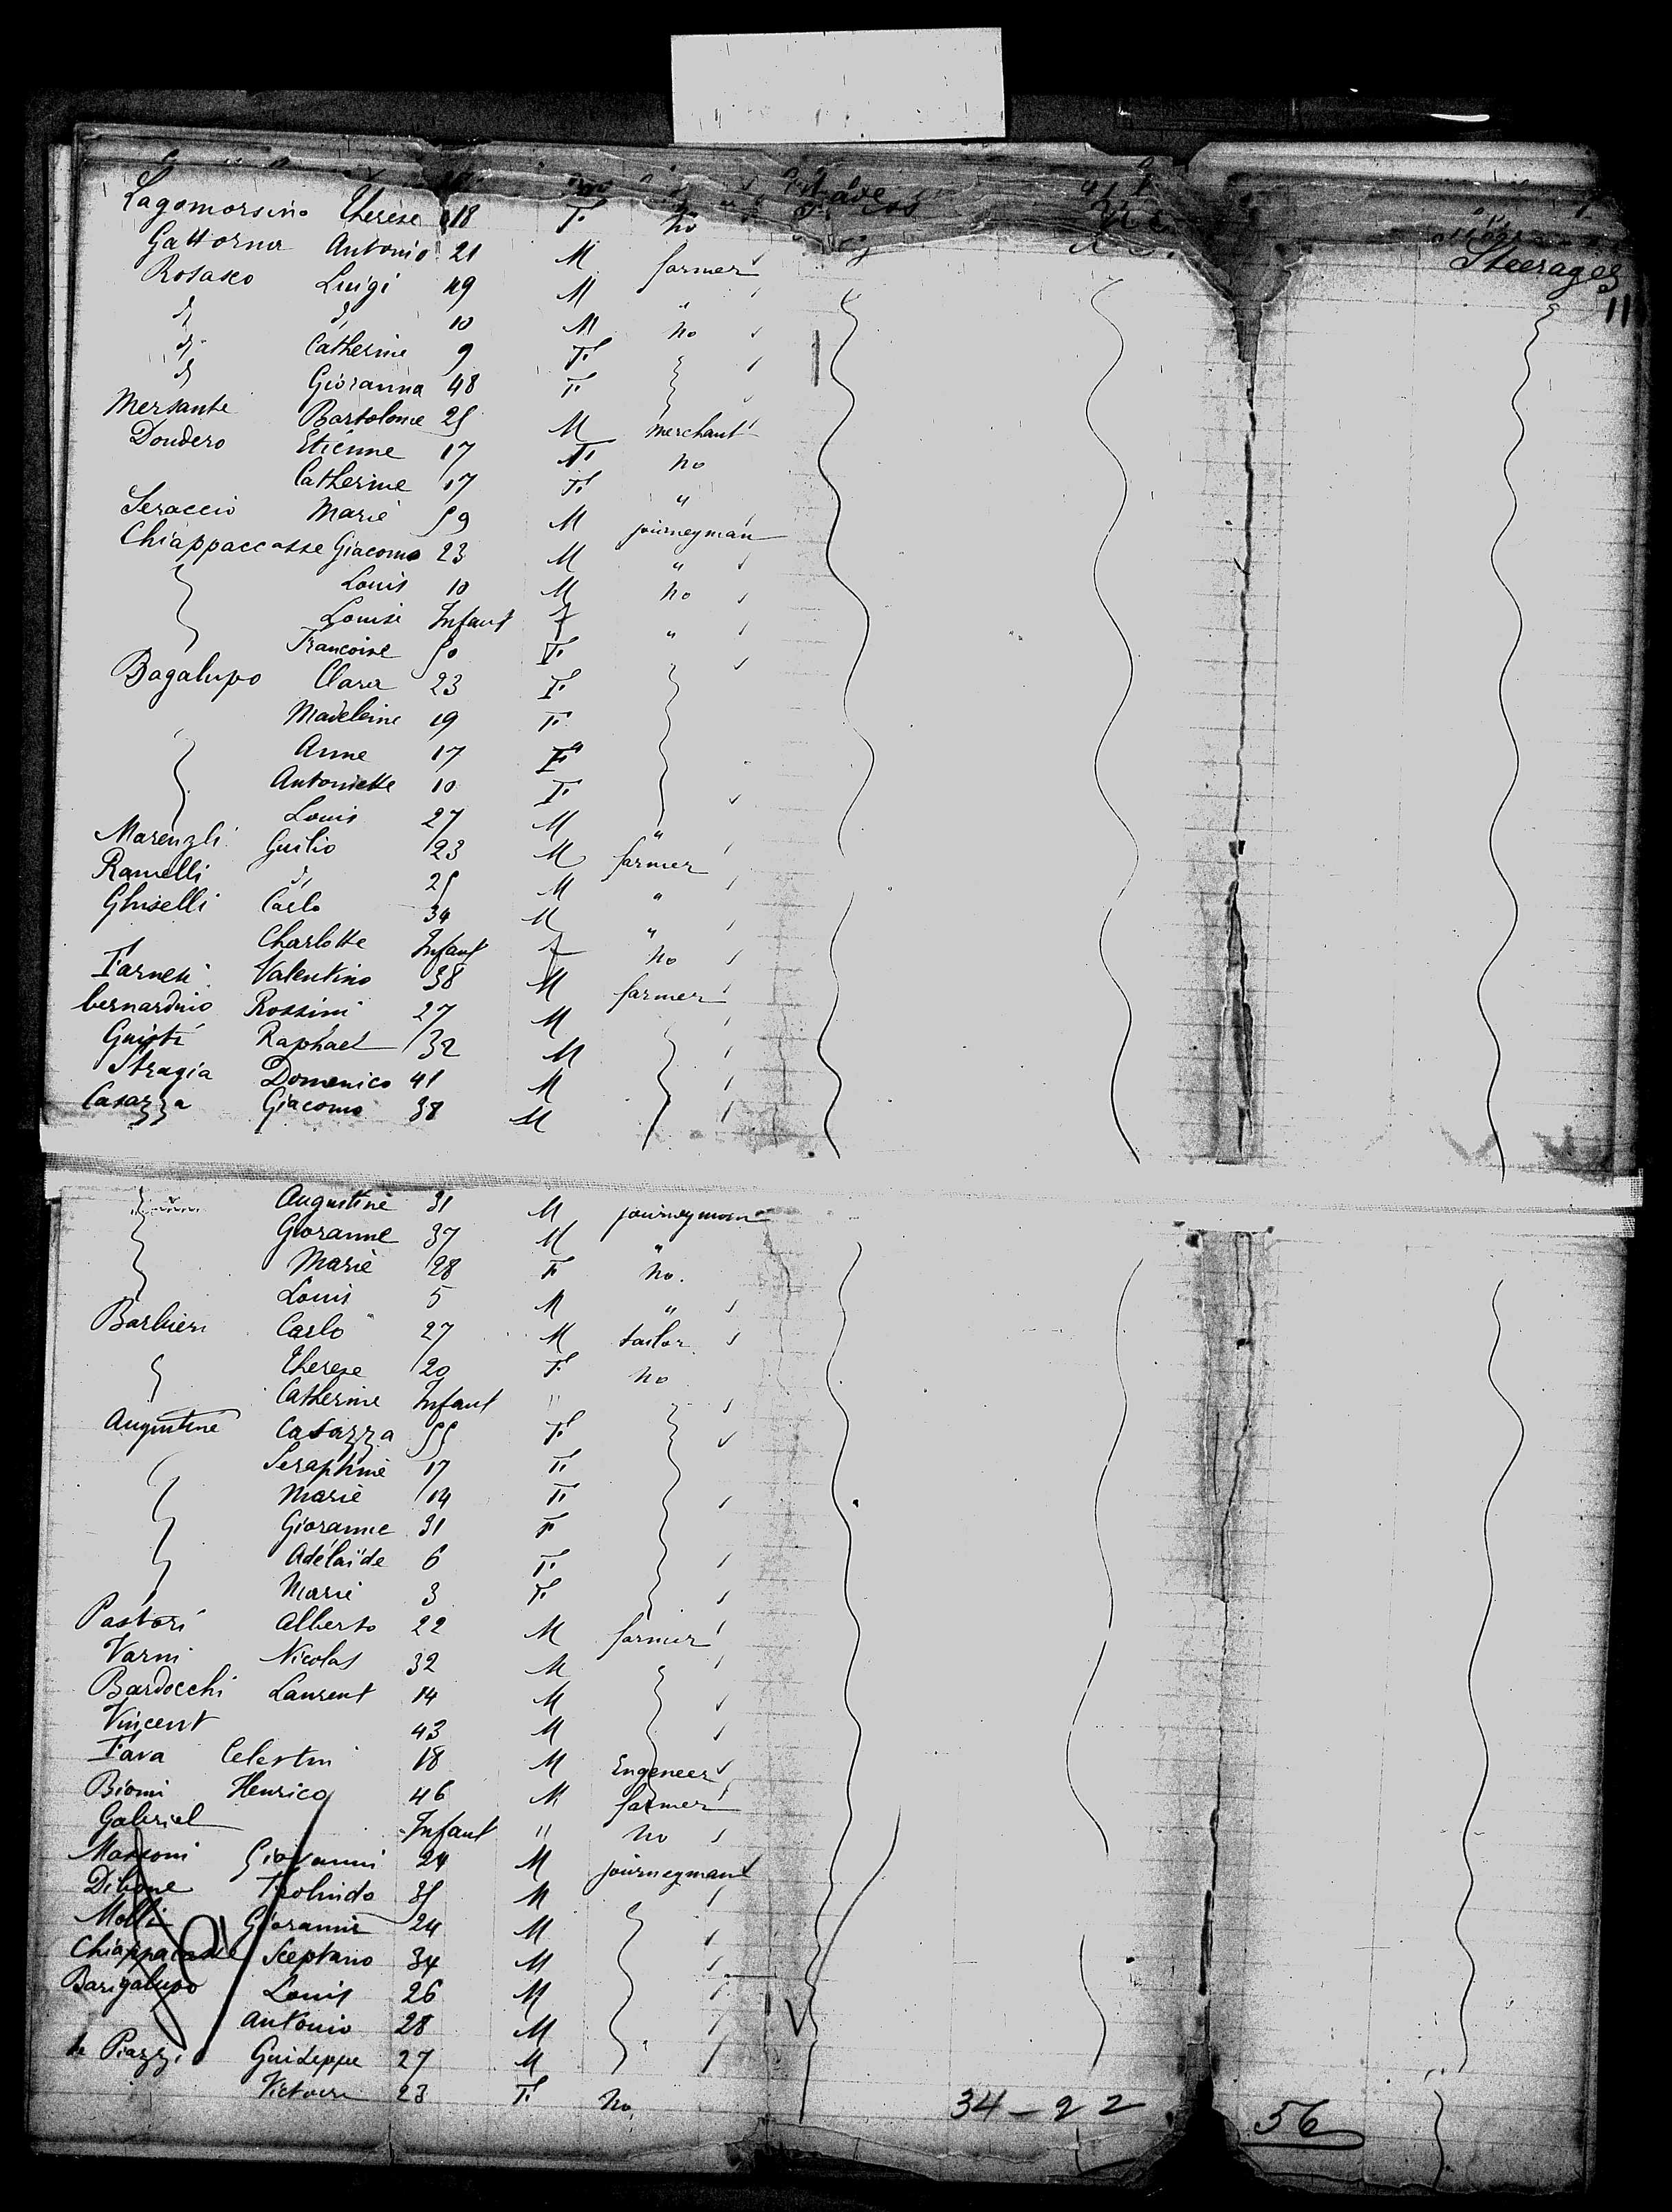 Lagomorsino Therèse 18 F. no Steerage
Gattorna Antonio 21 M farmer
Rosasco Luigi 49 M "
d° d° 10 M no
d° Catherine 9 F.
d° Giovanna 48 F.
Mersante Bartolome 25 M merchant
Dondero Etienne 17 F. no
Catherine 17 F. "
Seraccio Marie 59 M journeyman
Chiappaccasse Giacomo 23 M "
Louis 10 M no
Louise Infant f "
Francoise 50 F.
Bagalupo Clara 23 F.
Madeleine 19 F.
Anne 17 F.
Antoniette 10 F.
Louis 27 M "
Marenzli Guilio 23 M farmer
Ramelli d° 25 M "
Ghiselli Carlo 34 M "
Charlotte Infant f no
Farnesi Valentino 38 M farmer
bernardino Rossini 27 M
Guisti Raphael 32 M
Stragia Domenico 41 M
Casazza Giacomo 38 M
Augustine 31 M journeyman
Giovanne 37 M "
Marie 28 F no.
Louis 5 M "
Barbieri Carlo 27 M tailor
Therese 20 F. no
Catherine Infant "
Augustine Casazza 55 F.
Seraphine 17 F.
Marie 14 F.
Giovanne 31 F
Adélaïde 6 F.
Marie 3 F.
Pastori Alberto 22 M farmer
Varni Nicolas 32 M
Bardocchi Laurent 14 M
Vincent 43 M
Fava Celestin 18 M Engeneer
Biomi Henrico 46 M farmer
Gabriel Infant " no
Massoni Giovanni 24 M journeyman
Dibone 35 M
Molli Giovanni 24 M
Chiappacasse Sceptano 34 M
Barigalupo Louis 26 M
Antonio 28 M
de Piazzi Guiseppe 27 M
Victoire 23 F. no.
34 - 22 56